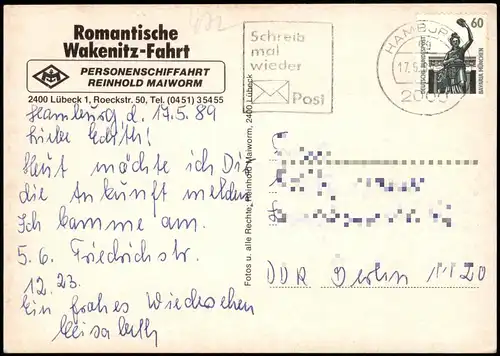 Romantische
Wakenitz-Fahrt
PERSONENSCHIFFAHRT
REINHOLD MAIWORM
2400 Lübeck 1, Roeckstr. 50, Tel. (04 51) 3 54 55
Hamburg, d. 17.5.89
Liebe Edith!
Heut möchte ich Dir
die Ankunft melden
Ich komme am
5.6. Friedrichstr.
12.23.
Ein frohes Wiedersehen
Elisabeth
Fotos u. alle Rechte: Reinhold Maiworm, 2400 Lübeck
Schreib
mal
wieder
Post
HAMBURG
17.5.
2000
60
DEUTSCHE BUNDESPOST
BAVARIA MÜNCHEN
DDR Berlin 1120